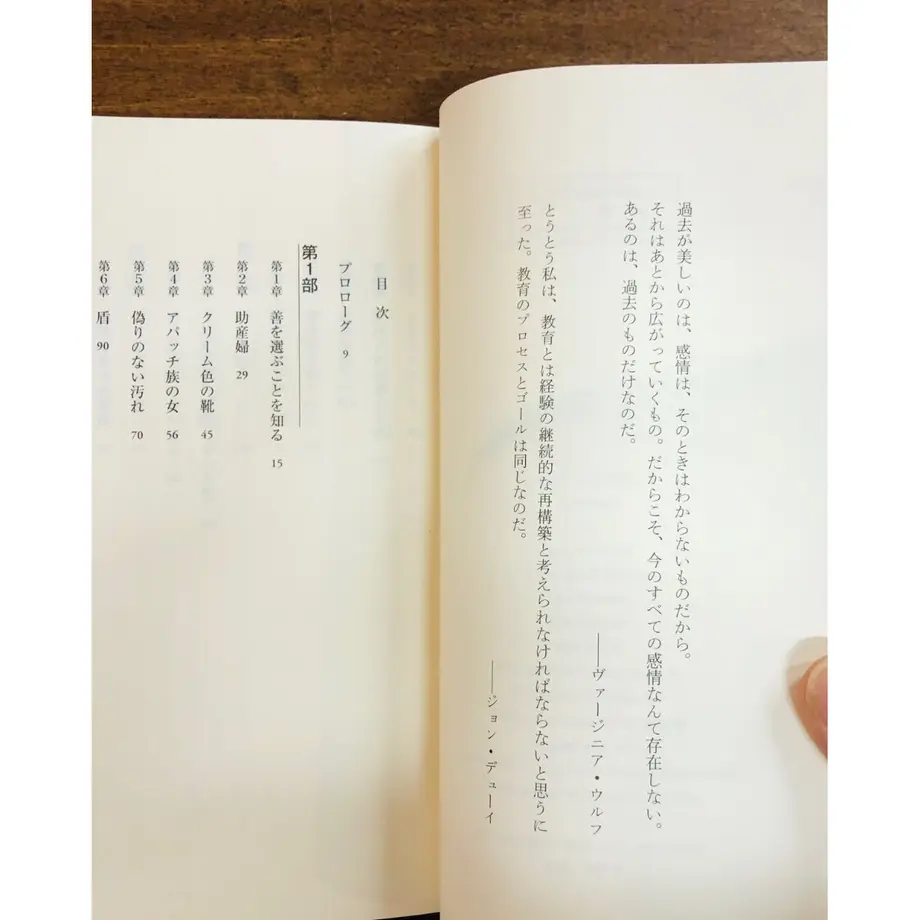 過去が美しいのは、感情は、そのときはわからないものだから。
それはあとから広がっていくもの。だからこそ、今のすべての感情なんて存在しない。
あるのは、過去のものだけなのだ。
――ヴァージニア・ウルフ
とうとう私は、教育とは経験の継続的な再構築と考えられなければならないと思うに
至った。教育のプロセスとゴールは同じなのだ。
――ジョン・デューイ
目次
プロローグ 9
第1部
第1章 善を選ぶことを知る 15
第2章 助産婦 29
第3章 クリーム色の靴 45
第4章 アパッチ族の女 56
第5章 偽りのない汚れ 70
第6章 盾 90